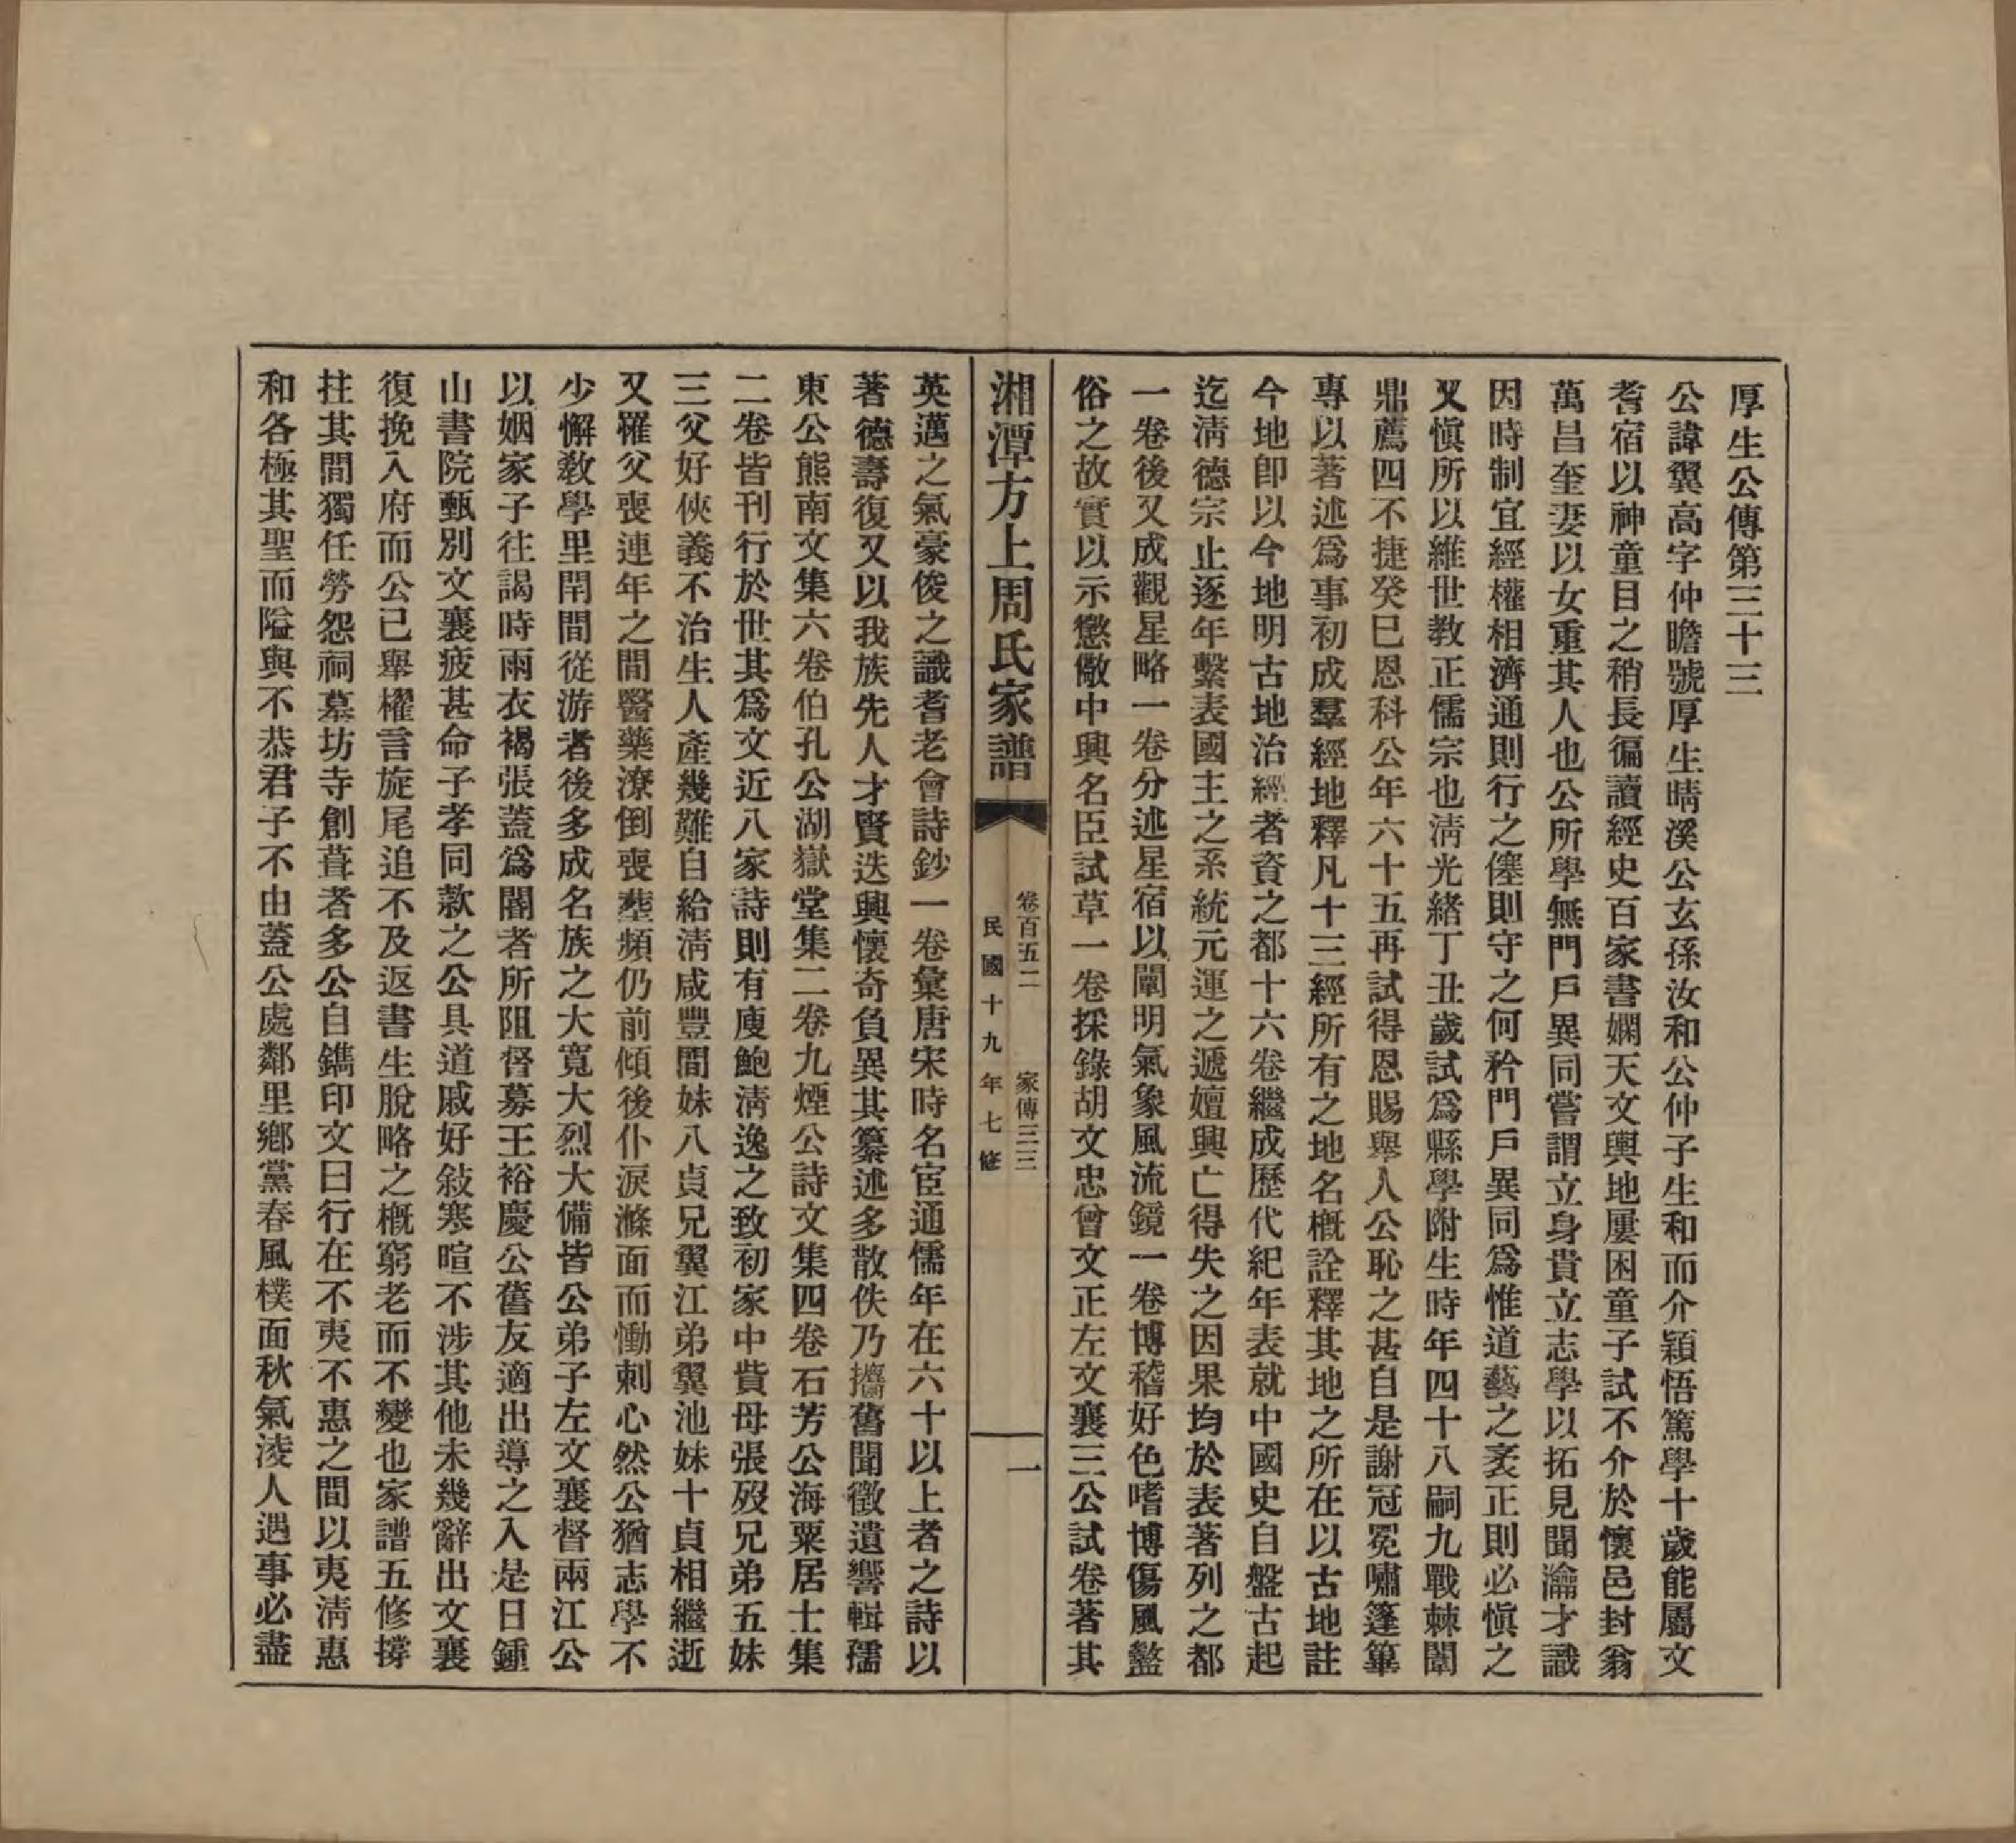 厚生公傳第三十三
公諱翼高字仲瞻號厚生晴溪公玄孫汝和公仲子生和而介穎悟篤學十歲能屬文
耆宿以神童目之稍長徧讀經史百家書嫻天文輿地屢困童子試不介於懷邑封翁
萬昌奎妻以女重其人也公所學無門戶異同嘗謂立身貴立志學以拓見聞瀹才識
因時制宜經權相濟通則行之僿則守之何矜門戶異同爲惟道藝之袤正則必愼之
又愼所以維世教正儒宗也淸光緒丁丑歲試爲縣學附生時年四十八嗣九戰棘闈
鼎薦四不捷癸巳恩科公年六十五再試得恩賜舉人公恥之甚自是謝冠冕嘯篷篳
專以著述爲事初成羣經地釋凡十三經所有之地名概詮釋其地之所在以古地註
今地卽以今地明古地治經者資之都十六卷繼成歷代紀年表就中國史自盤古起
迄淸德宗止逐年繫表國主之系統元運之遞嬗興亡得失之因果均於表著列之都
一卷後又成觀星略一卷分述星宿以闡明氣象風流鏡一卷博稽好色嗜博傷風盭
俗之故實以示懲儆中興名臣試草一卷採錄胡文忠曾文正左文襄三公試卷著其
湘潭方上周氏家譜
卷百五二 家傳三三
民國十九年七修
一
英邁之氣豪俊之識耆老會詩鈔一卷彙唐宋時名宦通儒年在六十以上者之詩以
著德壽復又以我族先人才賢迭興懷奇負異其纂述多散佚乃攟舊聞徵遺響輯孺
東公熊南文集六卷伯孔公湖嶽堂集二卷九煙公詩文集四卷石芳公海粟居士集
二卷皆刊行於世其爲文近八家詩則有庾鮑淸逸之致初家中貲母張歿兄弟五妹
三父好俠義不治生人產幾難自給淸咸豐間妹八貞兄翼江弟翼池妹十貞相繼逝
又罹父喪連年之間醫藥潦倒喪塟頻仍前傾後仆淚滌面而慟刺心然公猶志學不
少懈敎學里閈間從游者後多成名族之大寬大烈大備皆公弟子左文襄督兩江公
以姻家子往謁時雨衣褐張蓋爲閽者所阻督幕王裕慶公舊友適出導之入是日鍾
山書院甄別文襄疲甚命子孝同款之公具道戚好敍寒暄不涉其他未幾辭出文襄
復挽入府而公已舉櫂言旋尾追不及返書生脫略之概窮老而不變也家譜五修撐
拄其間獨任勞怨祠墓坊寺創葺者多公自鐫印文曰行在不夷不惠之間以夷淸惠
和各極其聖而隘與不恭君子不由蓋公處鄰里鄉黨春風樸面秋氣淩人遇事必盡